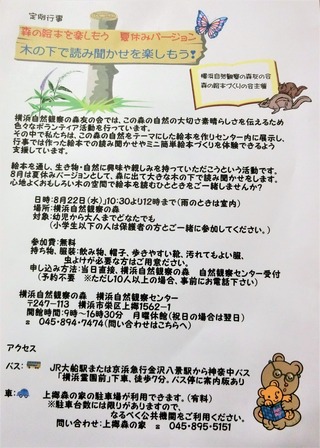 定例行事
森の絵本を楽しもう 夏休みバージョン
木の下で読み聞かせを楽しもう!
横浜自然観察の森友の会
森の絵本づくりの会主催
横浜自然観察の森友の会では、この森の自然の大切さ素晴らしさを伝えるため
色々なボランティア活動を行っています。
その中で私たちは、この森の自然をテーマにした絵本を作りセンター内に展示し、
行事では作った絵本での読み聞かせやミニ簡単絵本づくりを体験できるよう
支援しています。
絵本を通し、生き物・自然に興味や親しみを持っていただこうという活動です。
8月は夏休みバージョンとして、森に出て大きな木の下で読み聞かせをします。
心地よくおもしろい木の空間で絵本を読むひとときをご一緒しませんか?
日時:8月22日(水)10:30より12時まで(雨のときは室内)
場所:横浜自然観察の森
対象:幼児から大人までどなたでも
(小学生以下の人は保護者の方とご一緒に参加してください。)
参加費:無料
持ち物、服装:飲み物、帽子、歩きやすい靴、汚れてもよい服、
虫よけが必要な方はご用意ください。
申し込み方法:当日直接、横浜自然観察の森 自然観察センター受付
(予約不要 ※ただし10人以上の場合、事前にお電話下さい)
横浜自然観察の森 横浜自然観察センター
〒247-113 横浜市栄区上郷町1562-1
開館時間:9時~16時30分 月曜休館(祝日の場合は翌日)
☎ 045-894-7474(問い合わせはこちらへ)
アクセス
バス: JR大船駅または京浜急行金沢八景駅から神奈中バス
「横浜霊園前」下車、徒歩7分。バス停に案内版あり
車: 上郷森の家の駐車場が利用できます。(有料)
※駐車台数には限りがありますので、
なるべく公共機関をご利用ください。
問い合わせ:上郷森の家 ☎ 045-895-5151